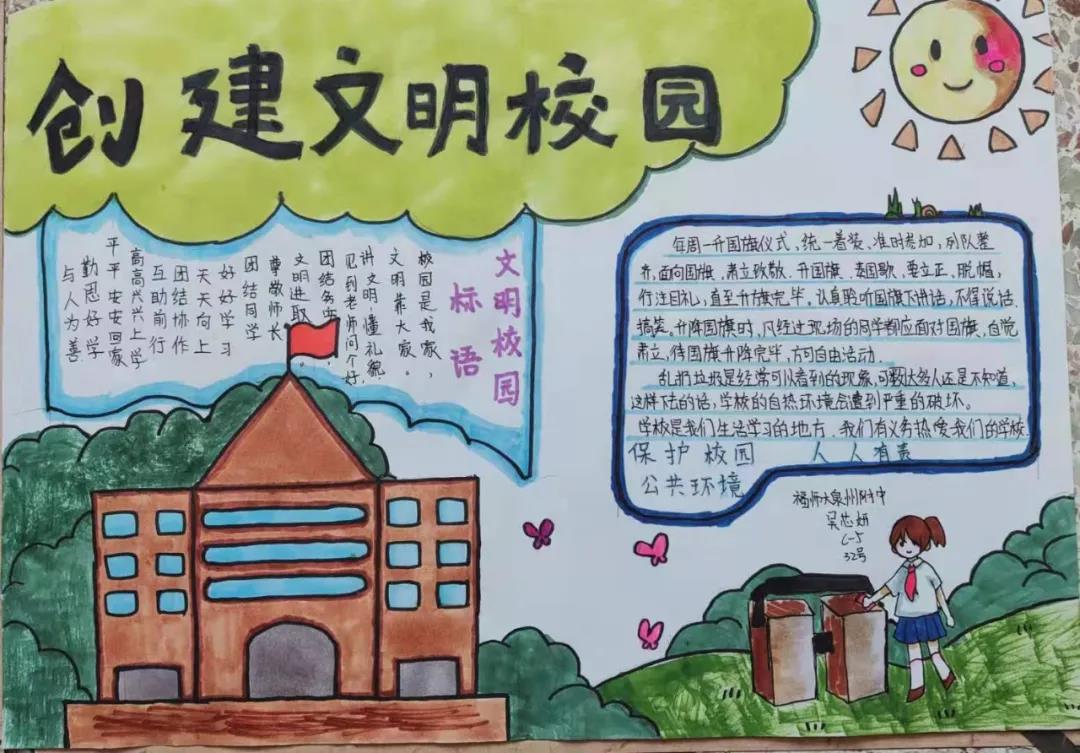 创建文明校园
文明校园
标语
校园是我家，
文明靠大家。
讲文明懂礼貌，
见到老师问个好，
团结务
文明进取
尊敬师长
团结同学
好好学习
天天向上
团结协作
互助前行
高高兴兴上学
平平安安回家
勤思好学
与人为善
每周一升国旗仪式，统一着装、准时参加，列队整
齐，面向国旗，肃立致敬。升国旗、奏国歌，要立正，脱帽，
行注目礼，直至升旗完毕。认真聆听国旗下讲话，不得说话
搞笑。升降国旗时，凡经过现场的同学都应面对国旗，自觉
肃立，待国旗升降完毕，方可自由活动.
乱扔垃圾是经常可以看到的现象，可数达多人还是不知道，
这样下去的话，学校的自热环境会遭到严重的破坏。
学校是我们生活学习的地方，我们有义务热爱我们的学校.
保护校园 人人有责
公共环境
福师大泉州附中
吴芯妍
6-5
32号